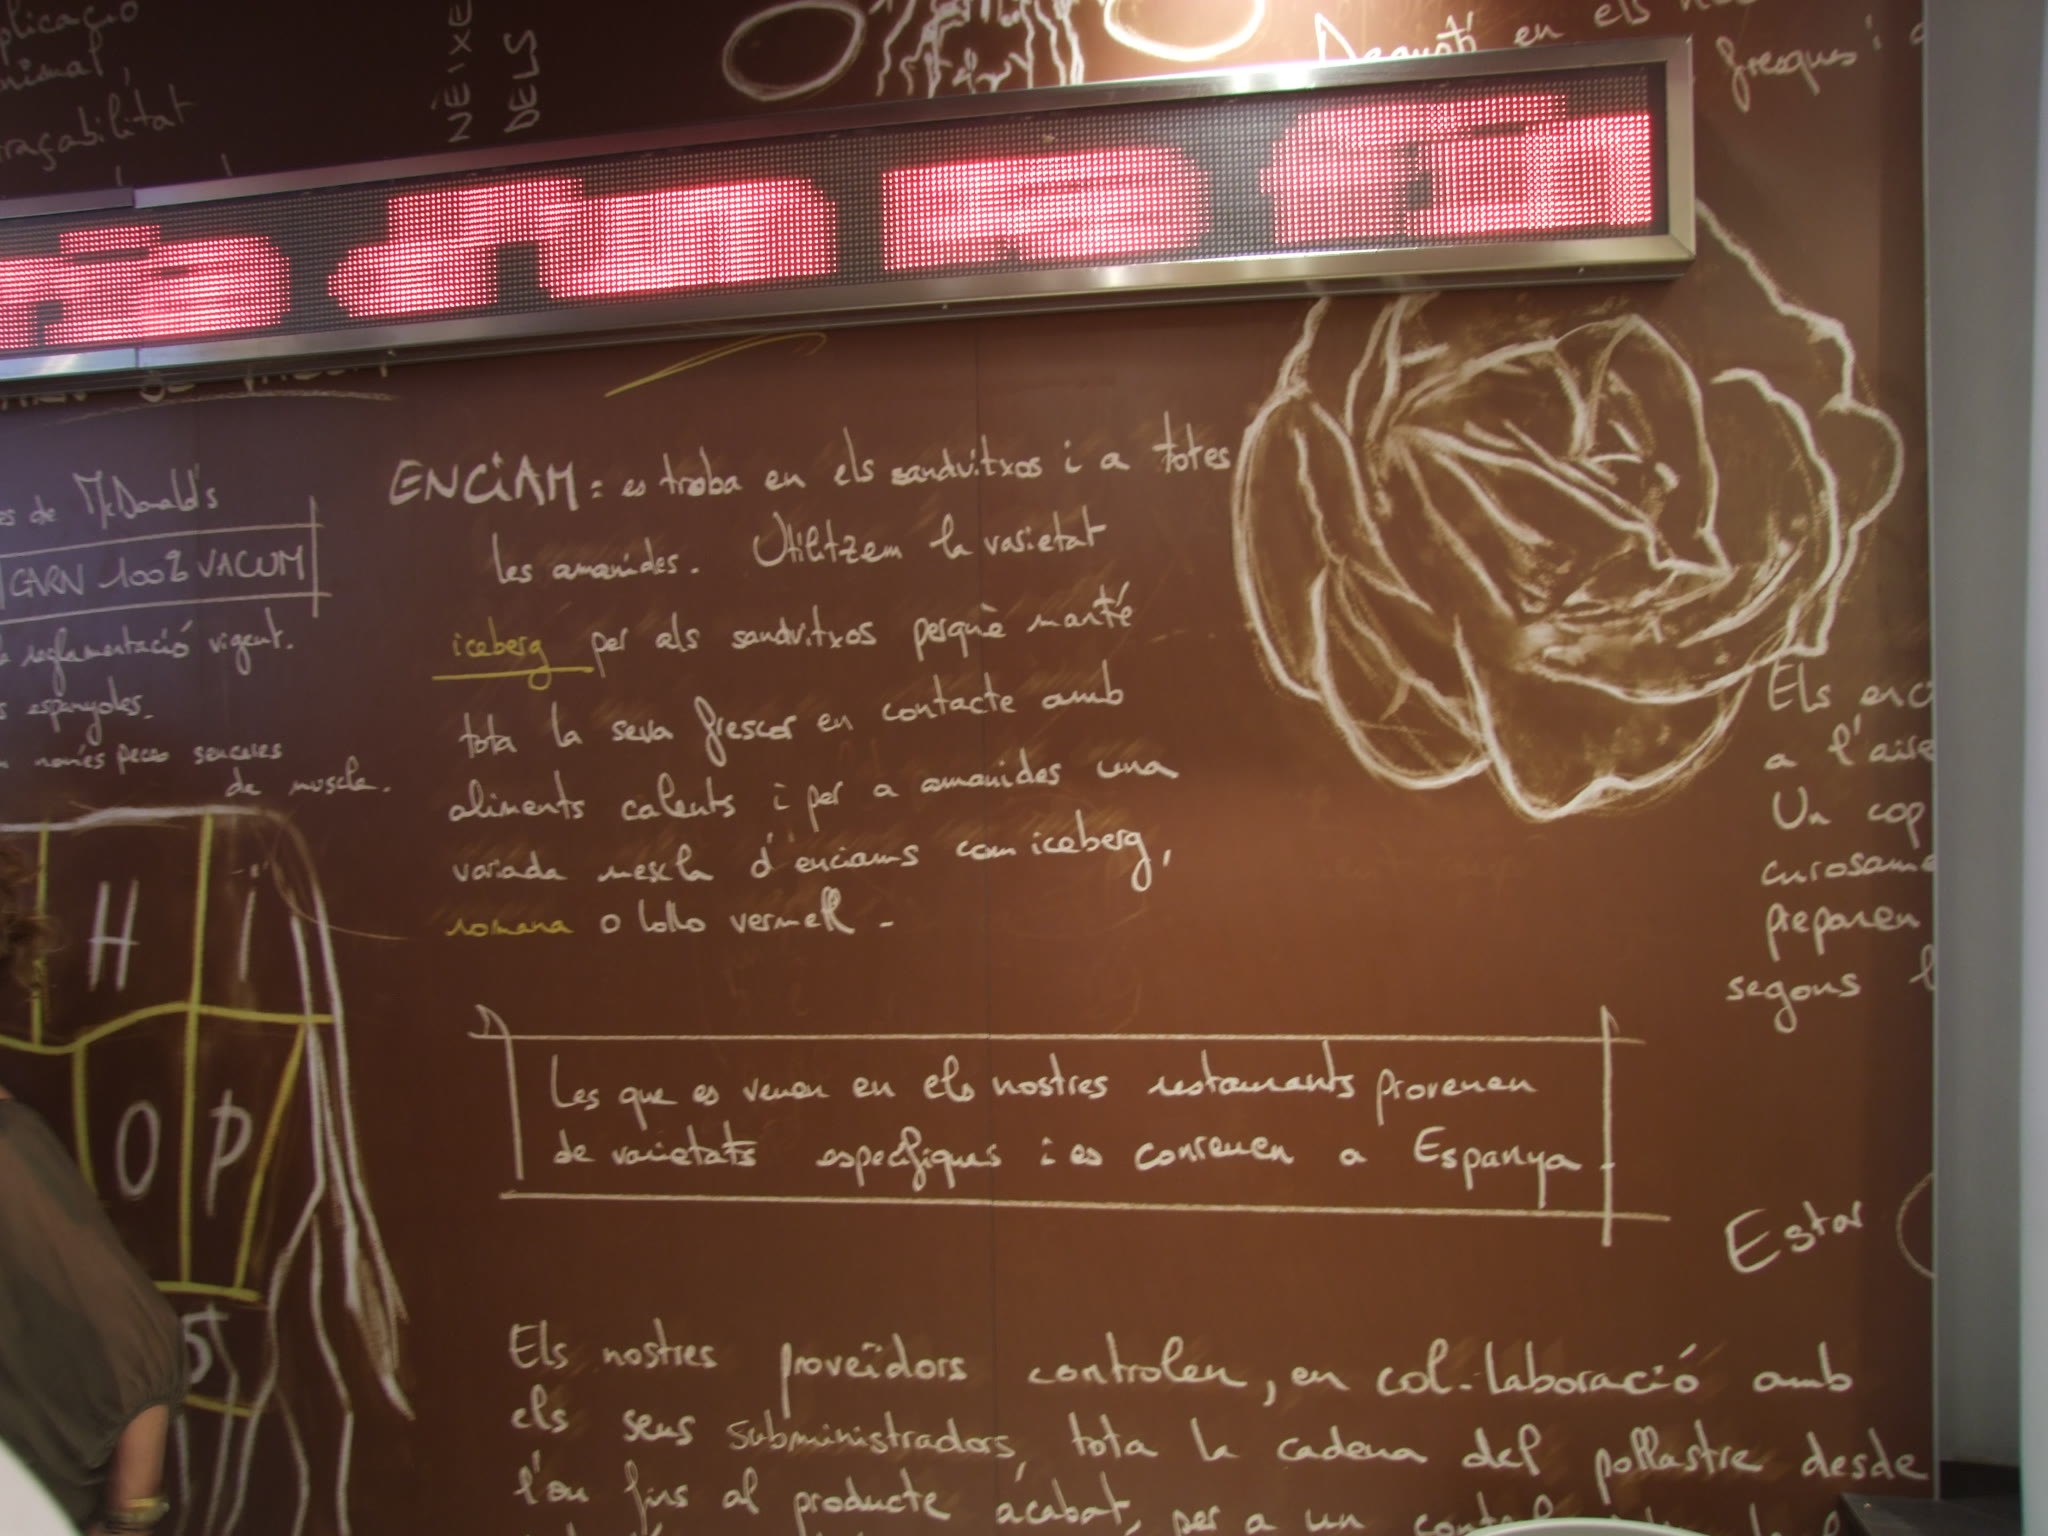 plicació
nimal,
raçabilitat
NÉIXE
DELS
en els
fresques i
d'un
es de McDonald's
CARN 100% VACUM
reglamentació vigent.
s espanyoles.
només peces senceres
de muscle.
H i
O P
S
ENCIAM: es troba en els sandvitxos i a totes
les amanides. Utilitzem la varietat
iceberg per als sandvitxos perquè manté
tota la seva frescor en contacte amb
aliments calents i per a amanides una
variada mescla d'enciams com iceberg,
romana o lollo vermell.
Els enci
a l'aire
Un cop
curosame
preparen
segons l
Les que es venen en els nostres restaurants provenen
de varietats específiques i es conreuen a Espanya.
Estar
Els nostres proveïdors controlen, en col·laboració amb
els seus subministradors, tota la cadena del pollastre desde
l'ou fins al producte acabat, per a un control